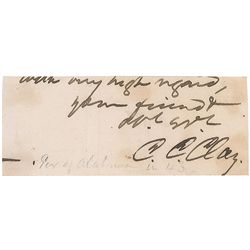 with very high regard,
your friend &
obt svt
C. C. Clay.
of Alabama